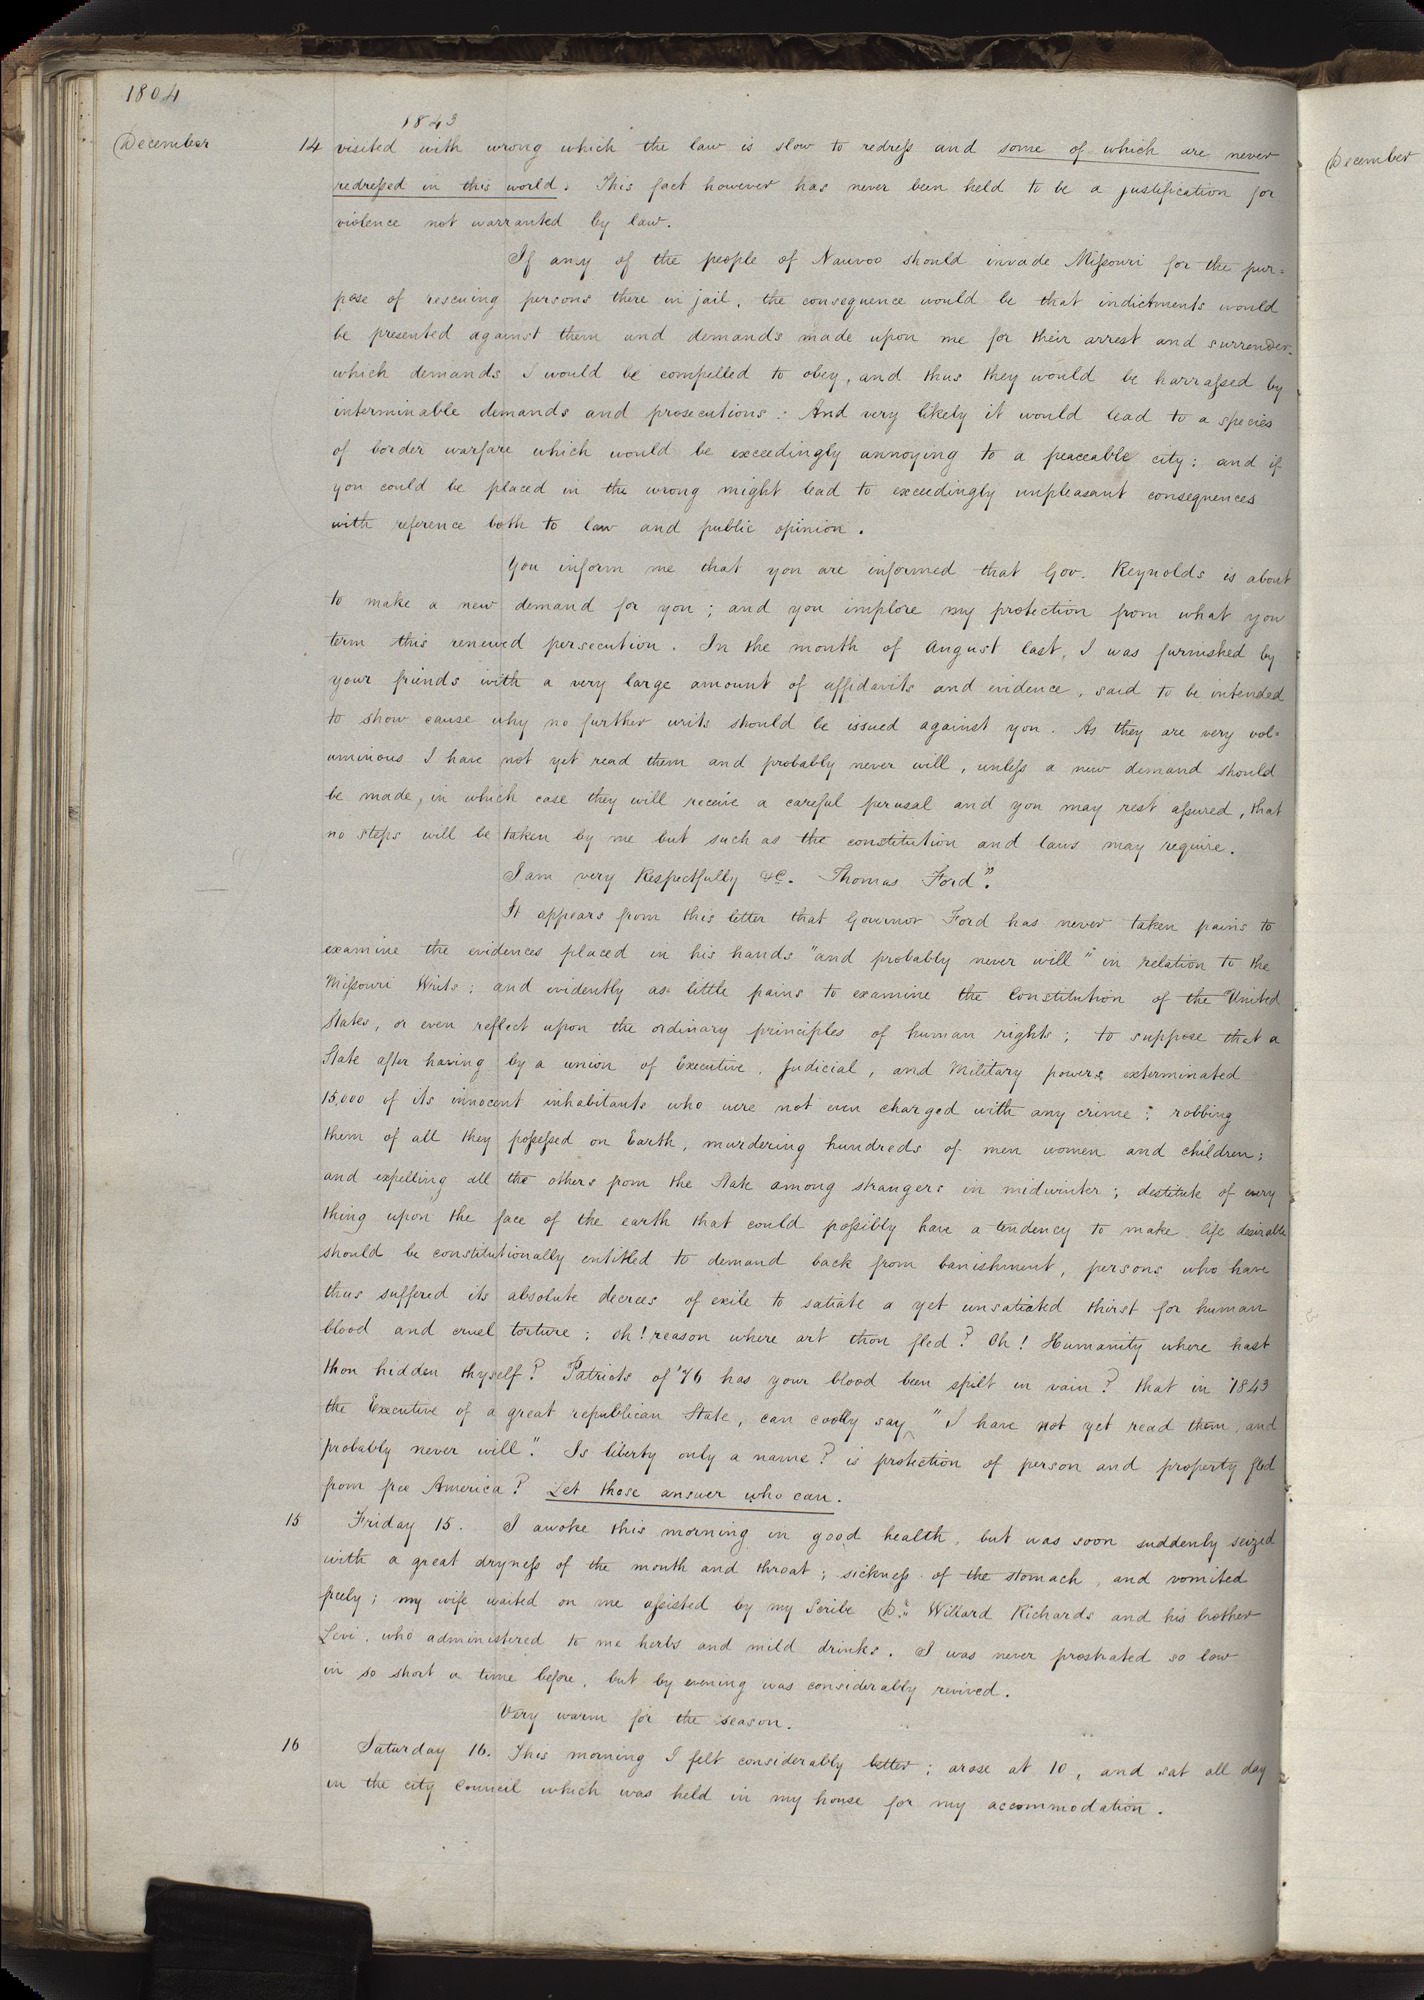 1804
1843
December 14 visited with wrong which the law is slow to redress and some of which are never
redressed in this world. This fact however has never been held to be a justification for
violence not warranted by law.
If any of the people of Nauvoo should invade Missouri for the pur=
pose of rescuing persons there in jail, the consequence would be that indictments would
be presented against them and demands made upon me for their arrest and surrender.
which demands I would be compelled to obey, and thus they would be harrassed by
interminable demands and prosecutions: And very likely it would lead to a species
of border warfare which would be exceedingly annoying to a peaceable city: and if
you could be placed in the wrong might lead to exceedingly unpleasant consequences
with reference both to law and public opinion.
You inform me that you are informed that Gov. Reynolds is about
to make a new demand for you; and you implore my protection from what you
term this renewed persecution. In the month of August last, I was furnished by
your friends with a very large amount of affidavits and evidence, said to be intended
to show cause why no further writs should be issued against you. As they are very vol=
uminous I have not yet read them and probably never will, unless a new demand should
be made, in which case they will receive a careful perusal and you may rest assured, that
no steps will be taken by me but such as the constitution and laws may require.
I am very Respectfully &c. Thomas Ford".
It appears from this letter that Governor Ford has never taken pains to
examine the evidences placed in his hands "and probably never will" in relation to the
Missouri Writs: and evidently as little pains to examine the Constitution of the United
States, or even reflect upon the ordinary principles of human rights; to suppose that a
State after having by a union of Executive, Judicial, and Military powers exterminated
15,000 of its innocent inhabitants who were not even charged with any crime: robbing
them of all they possessed on Earth, murdering hundreds of men women and children;
and expelling all the others from the State among strangers in midwinter; destitute of every
thing upon the face of the earth that could possibly have a tendency to make life desirable
should be constitutionally entitled to demand back from banishment, persons who have
thus suffered its absolute decrees of exile to satiate a yet unsatiated thirst for human
blood and cruel torture; oh! reason where art thou fled? Oh! Humanity where hast
thou hidden thyself? Patriots of '76 has your blood been spilt in vain? that in 1843
the Executive of a great republican State, can coolly say "I have not yet read them, and
probably never will". Is liberty only a name? is protection of person and property fled
from free America? Let those answer who can.
15 Friday 15. I awoke this morning in good health, but was soon suddenly seized
with a great dryness of the mouth and throat; sickness of the stomach, and vomited
freely; my wife waited on me assisted by my Scribe Dr. Willard Richards and his brother
Levi, who administered to me herbs and mild drinks. I was never prostrated so low
in so short a time before, but by evening was considerably revived.
Very warm for the season.
16 Saturday 16. This morning I felt considerably better; arose at 10, and sat all day
in the city Council which was held in my house for my accommodation.
December